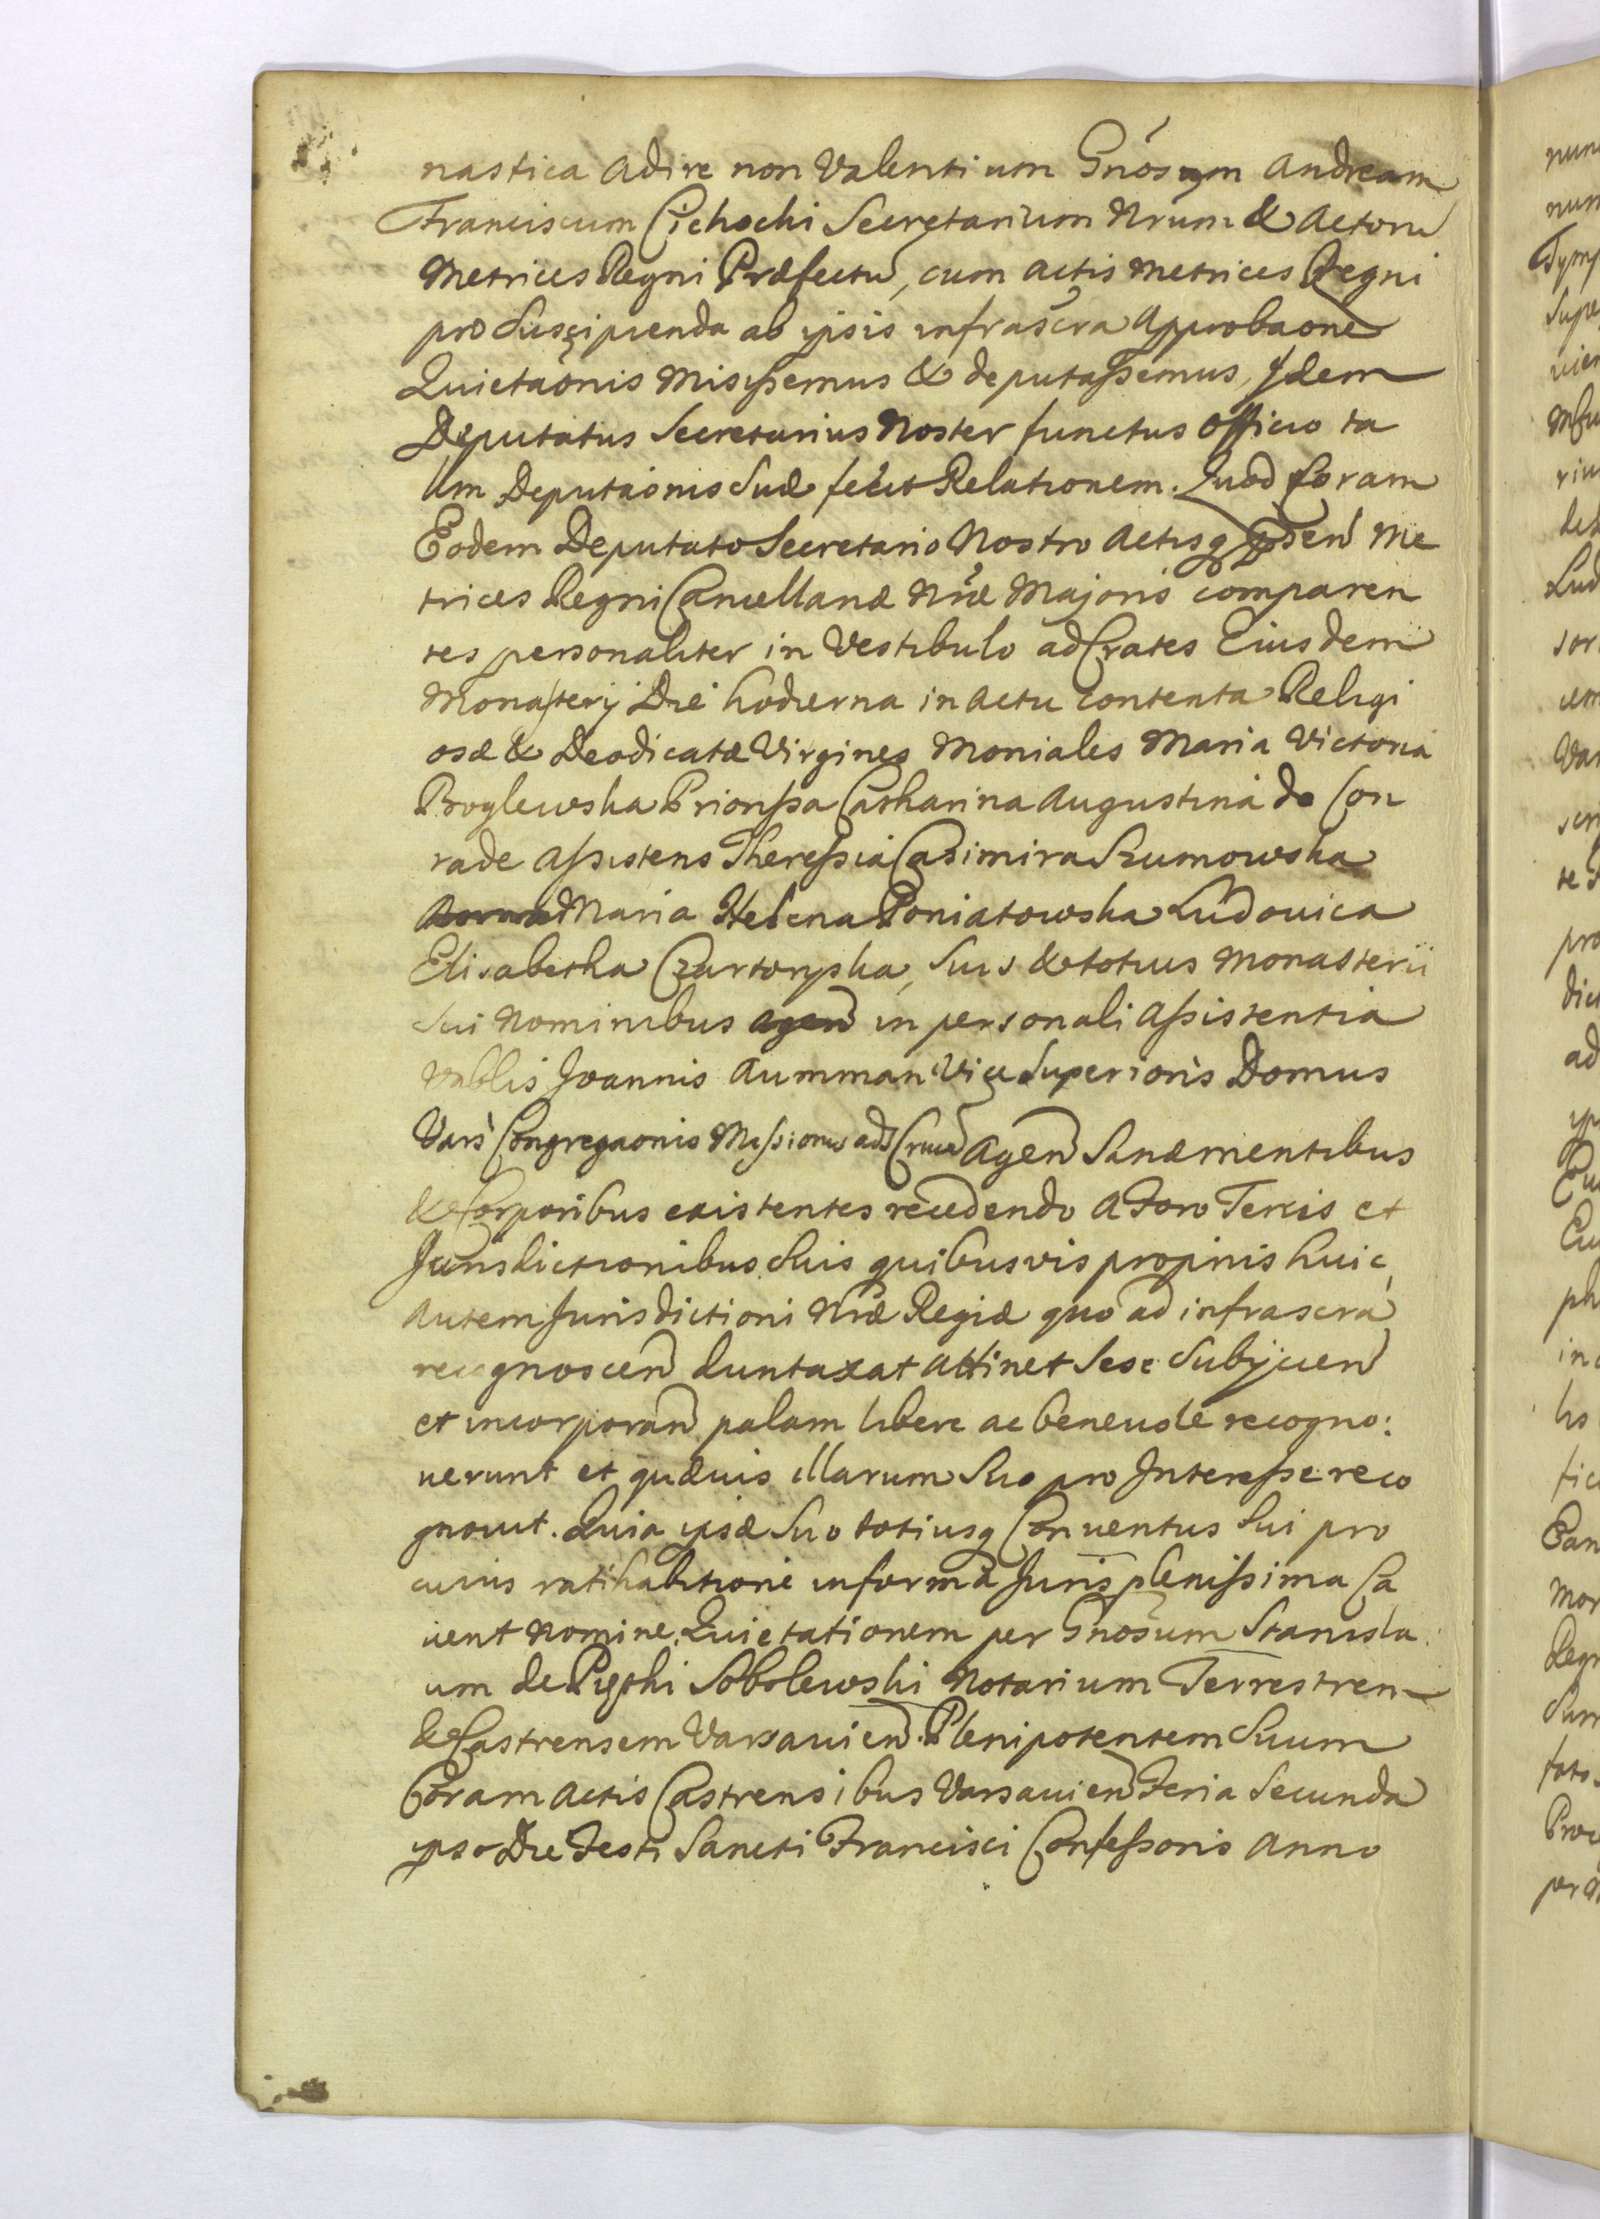 nastica adire non Valentium Gnosum Andream
Franciscum Cichocki Secretarium Nrum & Actoru
Metrices Regni Præfectu, cum actis Metrices Regni
pro Suscipienda ab ipsis infrascra Approbaone
Quietaonis Misissemus & deputassemus, Idem
Deputatus Secretarius Noster functus officio ta
lim Deputaonis Suæ fecit Relationem. Quod Coram
Eodem Deputato Secretario Nostro Actisq Me
trices Regni Cancellariæ Nræ Majoris comparen
tes personaliter in Vestibulo ad Crates Eiusdem
Monasterij Die hodierna in actu contenta Religi
osæ & Deodicatæ Virgines Moniales Maria Victoria
Boglewska Priorissa Catharina Augustina de Con
rade Assistens Theressia Casimira Szumowska
Maria Helena Poniatowska Ludovica
Elisabetha Czartoryska, Suis & totius Monasterii
Sui Nominibus agen in personali Assistentia
Vnblis Joannis Aumman Vice Superioris Domus
Vars Congregaonis Missionis ad S Crucē Agen Sanæ mentibus
& Corporibus existentes recedendo a Foro Terris et
Jurisdictionibus Suis quibusvis propriis huic
autem Jurisdictioni Nræ Regiæ quo ad infrascra
recognoscen duntaxat attinet Sese Subijcien
et incorporan palam libere ac benevole recogno:
uerunt et quævis illarum Suo pro Interesse reco
gnouit. Quia ipsæ Suo totiusq Conuentus Sui pro
cuius ratihabitione in forma Juris plenissima Ca
uent Nomine, Quietationem per Gnosum Stanisla
um de Piestki Sobolewski Notarium Terrestrem
& Castrensem Varsauien. Plenipotentem Suum
Coram actis Castrensibus Varsauien Feria Secunda
ipso Die Festi Sancti Francisci Confessoris Anno